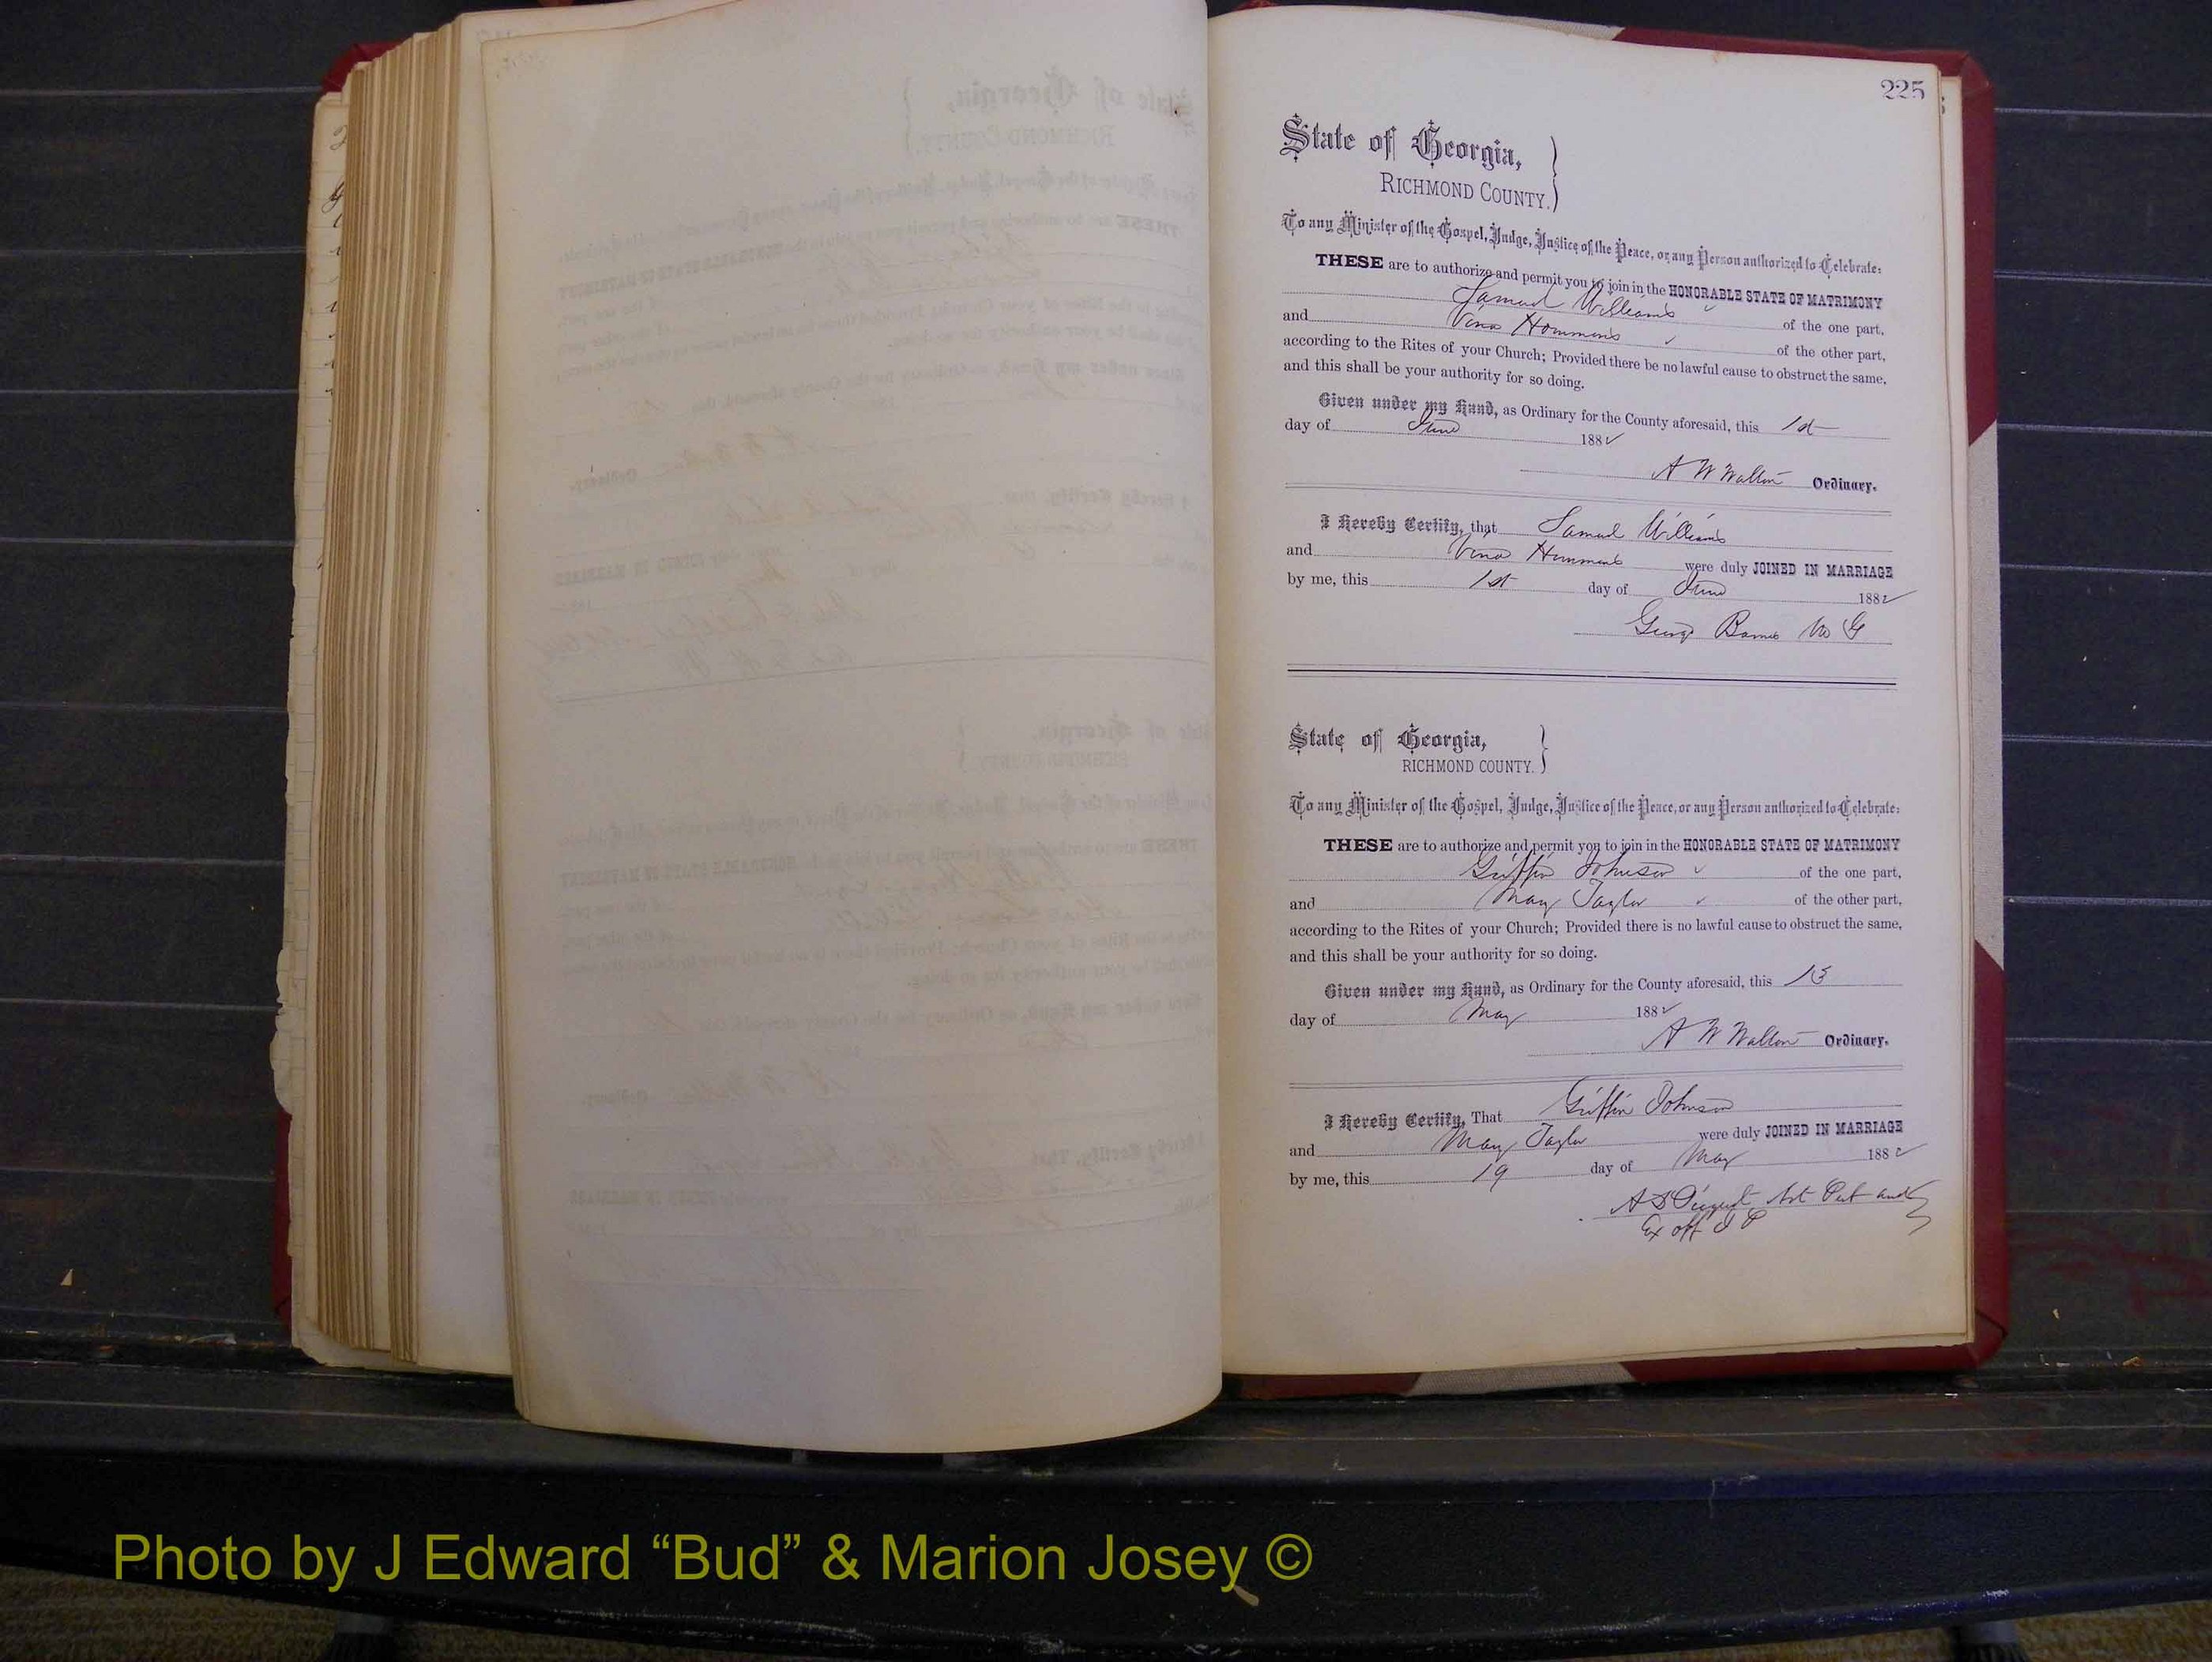 225
State of Georgia,
RICHMOND COUNTY.
To any Minister of the Gospel, Judge, Justice of the Peace, or any Person authorized to Celebrate:
THESE are to authorize and permit you to join in the HONORABLE STATE OF MATRIMONY
Samuel Williams of the one part,
and Vina Hammons of the other part,
according to the Rites of your Church; Provided there be no lawful cause to obstruct the same,
and this shall be your authority for so doing.
Given under my Hand, as Ordinary for the County aforesaid, this 1st
day of June 1882
A W Walton Ordinary.
I Hereby Certify, that Samuel Williams
and Vina were duly JOINED IN MARRIAGE
by me, this 1st day of June 1882
George Barnes M G
State of Georgia,
RICHMOND COUNTY.
To any Minister of the Gospel, Judge, Justice of the Peace, or any Person authorized to Celebrate:
THESE are to authorize and permit you to join in the HONORABLE STATE OF MATRIMONY
Griffin Johnson of the one part,
and May Taylor of the other part,
according to the Rites of your Church; Provided there is no lawful cause to obstruct the same,
and this shall be your authority for so doing.
Given under my Hand, as Ordinary for the County aforesaid, this 15
day of May 1882
A W Walton Ordinary.
I Hereby Certify, That Griffin Johnson
and May Taylor were duly JOINED IN MARRIAGE
by me, this 19 day of May 1882
Not Pub and
Ex off J P
Photo by J Edward “Bud” & Marion Josey ©